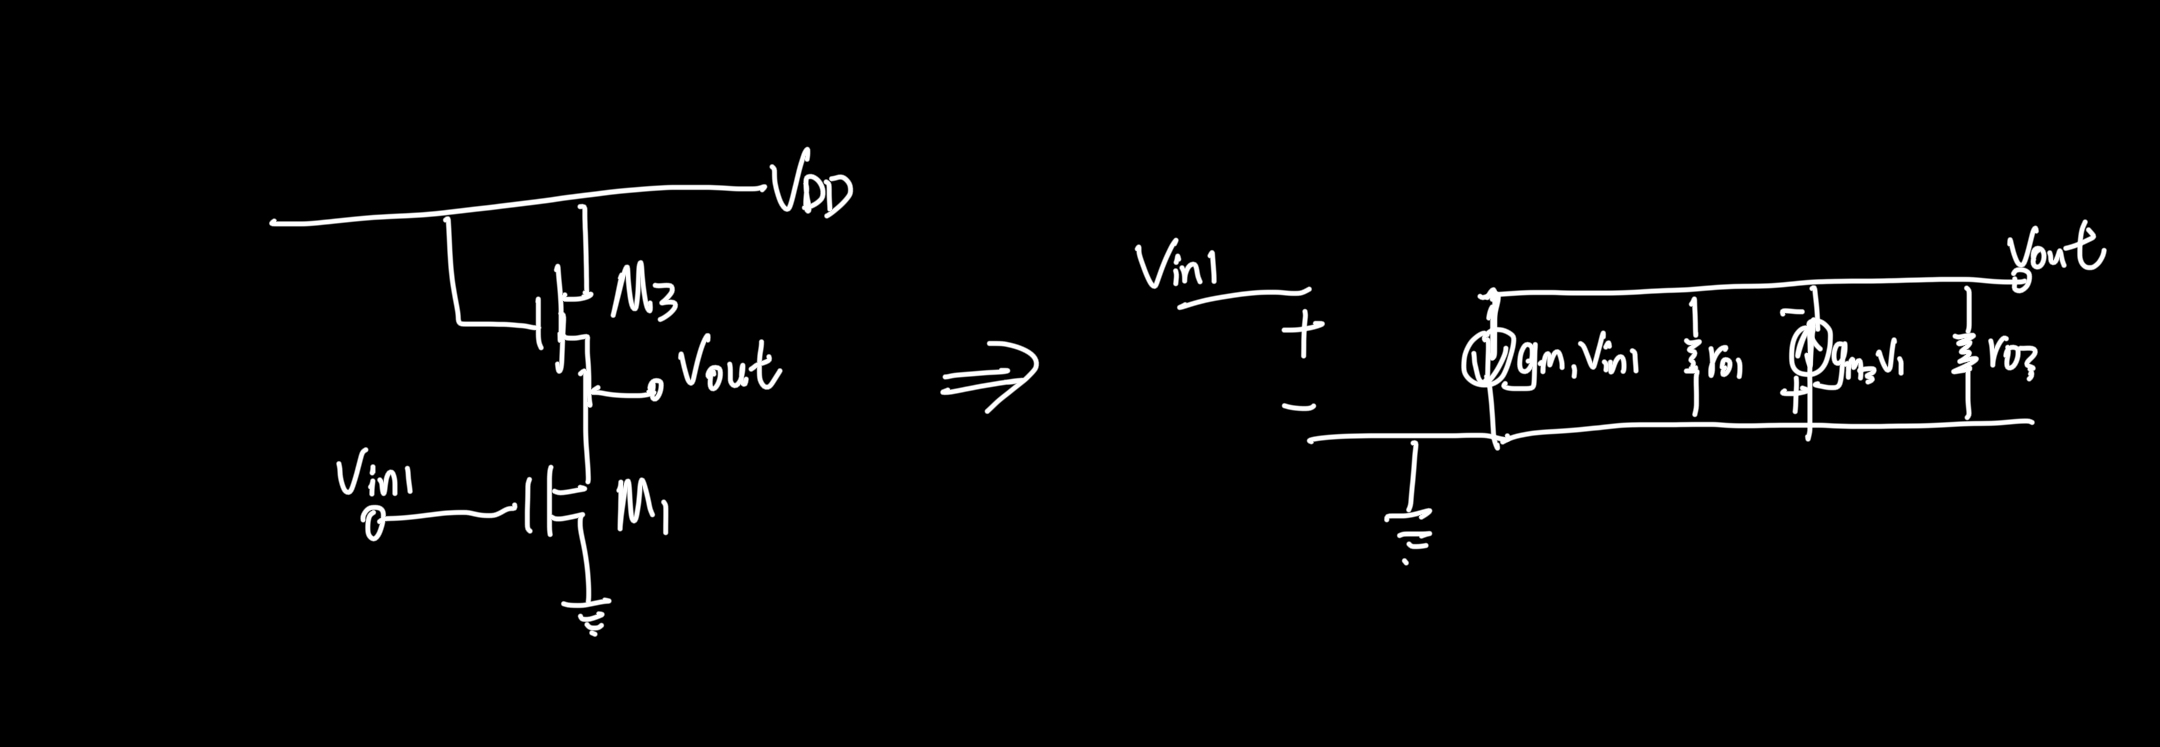 VDD
M3
Vout
Vin1
M1
⇒
Vin1
+
-
gm1Vin1
ro1
-
+
gm3V1
ro3
Vout